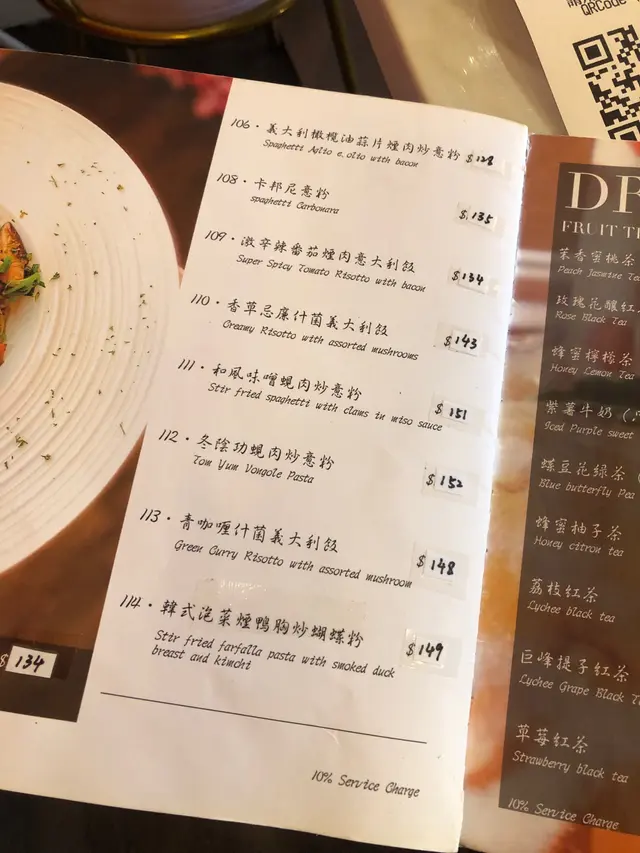 QRCode
106 · 義大利橄欖油蒜片煙肉炒意粉 $128
Spaghetti Aglio e. olio with bacon
108 · 卡邦尼意粉 $135
spaghetti Carbonara
109 · 激辛辣番茄煙肉意大利飯 $134
Super Spicy Tomato Risotto with bacon
110 · 香草忌廉什菌義大利飯 $143
Creamy Risotto with assorted mushrooms
111 · 和風味噌蜆肉炒意粉 $151
Stir fried spaghetti with clams in miso sauce
112 · 冬陰功蜆肉炒意粉 $152
Tom Yum Vongole Pasta
113 · 青咖喱什菌義大利飯 $148
Green Curry Risotto with assorted mushroom
114 · 韓式泡菜煙鴨胸炒蝴蝶粉 $149
Stir fried farfalla pasta with smoked duck
breast and kimchi
10% Service Charge
$134
DR
FRUIT TE
茉香蜜桃茶
Peach Jasmine Tea
玫瑰花釀紅
Rose Black Tea
蜂蜜檸檬茶
Honey Lemon Tea
紫薯牛奶 (
Iced Purple sweet
蝶豆花綠茶 (
Blue butterfly Pea
蜂蜜柚子茶
Honey citron tea
荔枝紅茶
Lychee black tea
巨峰提子紅茶
Lychee Grape Black T
草莓紅茶
Strawberry black tea
10% Service Charge